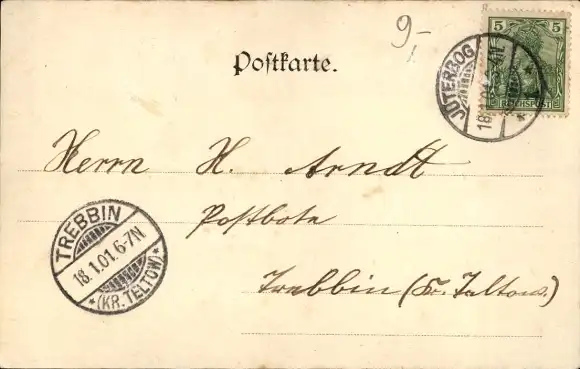 9.-
5 5
REICHSPOST
JÜTERBOG
18.1.01.6-7N
Postkarte.
Herrn H. Arndt
Postbote
Trebbin (Kr. Teltow.)
TREBBIN
18.1.01.6-7N
*(KR. TELTOW)*